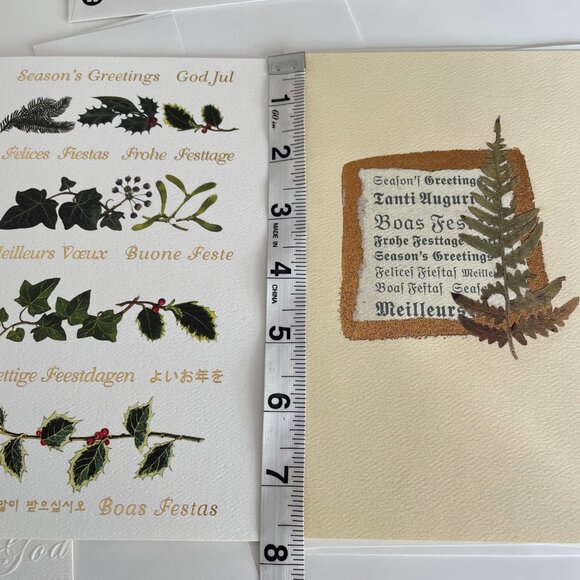 Season's Greetings God Jul
Felices Fiestas Frohe Festtage
Meilleurs Vœux Buone Feste
ettige Feestdagen よいお年を
많이 받으십시오 Boas Festas
God
1
60 in
2
3
MADE IN
4
CHINA
5
6
7
8
Season's Greeting
Tanti Auguri
Boas Fes
Frohe Festtage
Season's Greetings
Felices Fiestas Meille
Boas Festas Seaso
Meilleurs